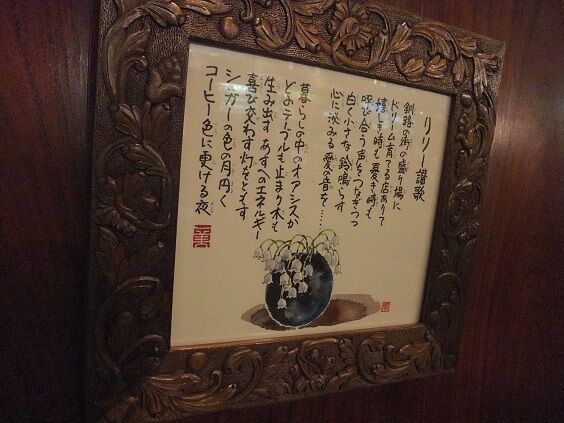 リリー讃歌
釧路の街の盛り場に
ドリーム育てる店ありて
嬉しき時も憂き時も
呼び合う声をつなぎつつ
白く小さな鈴鳴らす
心に沁みる愛の音を……
暮らしの中のオアシスか
どのテーブルも止まり木も
生み出すあすへのエネルギー
喜び交わす灯をともす
シュガーの色の月円く
コーヒー色に更ける夜